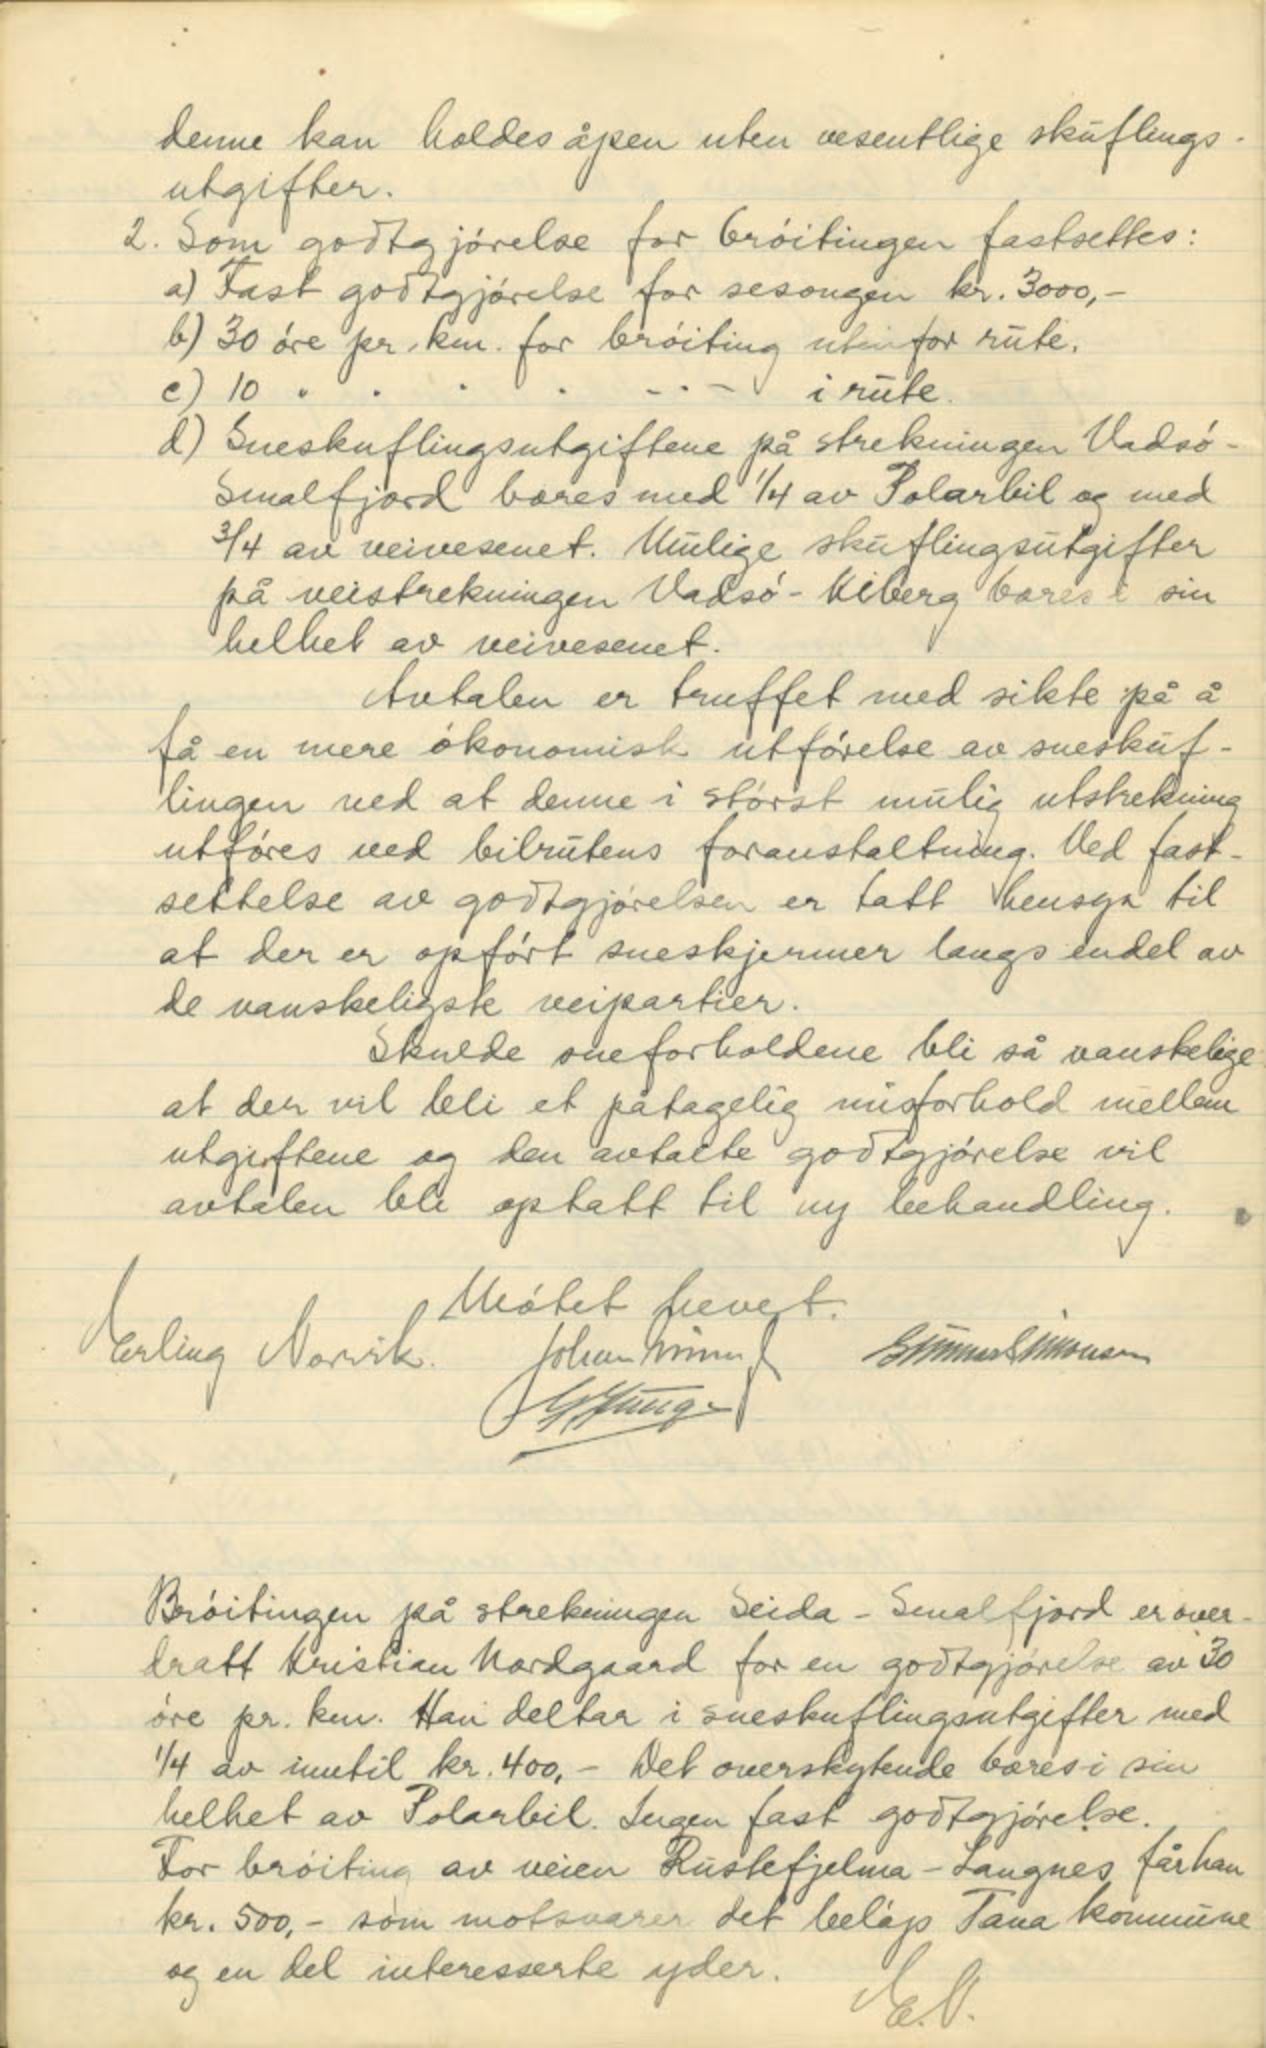 denne kan holdes åpen uten vesentlige skuflings-
utgifter.
2. Som godtgjórelse for bróitingen fastsettes:
a) Fast godtgjórelse for sesongen kr. 3000,-
b) 30 óre pr. km. for bróiting utenfor rute.
c) 10 " " " " - " - i rute.
d) Sneskuflingsutgiftene på strekningen Vadsó-
Smalfjord bæres med 1/4 av Polarbil og med
3/4 av veivesenet. Mulige skuflingsutgifter
på veistrekningen Vadsó - Kiberg bæres i sin
helhet av veivesenet.
Avtalen er truffet med sikte på å
få en mere ókonomisk utfórelse av sneskuf-
lingen ved at denne i stórst mulig utstrekning
utfóres ved bilrutens foranstaltning. Ved fast-
settelse av godtgjórelsen er tatt hensyn til
at der er opfórt sneskjermer langs endel av
de vanskeligste veipartier.
Skulde sneforholdene bli så vanskelige
at der vil bli et påtagelig misforhold mellem
utgiftene og den avtalte godtgjórelse vil
avtalen bli optatt til ny behandling.
Mótet hevet.
Erling Norvik. Johan Gunnar Simonsen
Bróitingen på strekningen Seida - Smalfjord er over-
dratt Kristian Nordgaard for en godtgjórelse av 30
óre pr. km. Han deltar i sneskuflingsutgifter med
1/4 av inntil kr. 400,- Det overskytende bæres i sin
helhet av Polarbil. Ingen fast godtgjórelse.
For bróiting av veien Rustefjelma - Langnes får han
kr. 500,- som motsvarer det beløp Tana kommune
og en del interesserte yder.
E.N.